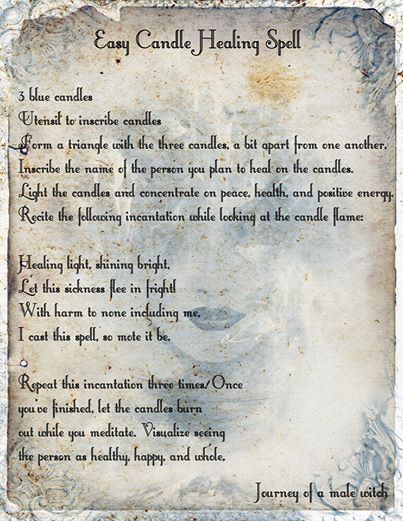 Easy Candle Healing Spell
3 blue candles
Utensil to inscribe candles
Form a triangle with the three candles, a bit apart from one another.
Inscribe the name of the person you plan to heal on the candles.
Light the candles and concentrate on peace, health, and positive energy.
Recite the following incantation while looking at the candle flame:
Healing light, shining bright,
Let this sickness flee in fright!
With harm to none including me,
I cast this spell, so mote it be.
Repeat this incantation three times/Once
you've finished, let the candles burn
out while you meditate. Visualize seeing
the person as healthy, happy, and whole.
Journey of a male witch